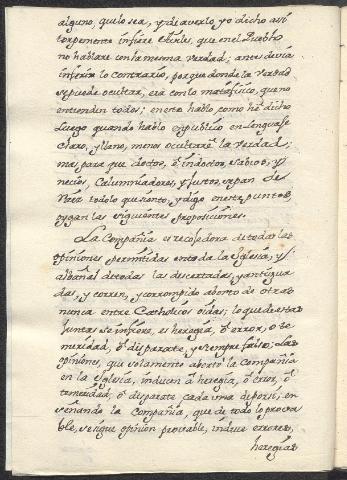 alguno, que lo sea, y de averlo yo dicho assi
torpemente infiere Charles, que en el Pueblo
no hablare con la mesma verdad; antes devia
inferir lo contrario, porque donde la verdad
se puede ocultar, era con lo metafisico, que no
entienden todos; en esto hablo, como hê dicho
luego quando hablo en publico en lenguaje
claro, y llano, menos ocultarê la verdad;
mas para que doctos, ô indoctos, sabios, y
necios, Calumniadores, y justos, sepan de
vna vez todo lo que siento, y digo en este punto,
oygan las siguientes proposiciones.
La Compañia es recoledora de todas las
opiniones permitidas en toda la Iglesia, y
albañal de todas las desecadas, y antiguadas
das, y corren, y corrompido aborto de otras
nunca entre Catholicos oidas; lo que de estas
juntas se infiere, es heregia, ô error, ô te-
meridad, ô disparate, y siempre falso; las
opiniones, que solamente abortô la Compañia
en la Iglesia, inducen â heregia, ô error, ô
temeridad, ô disparate cada una de por si; en-
señando la Compañia, que de todo lo prova-
ble, se sigue opinion provable, induce errores,
heregias